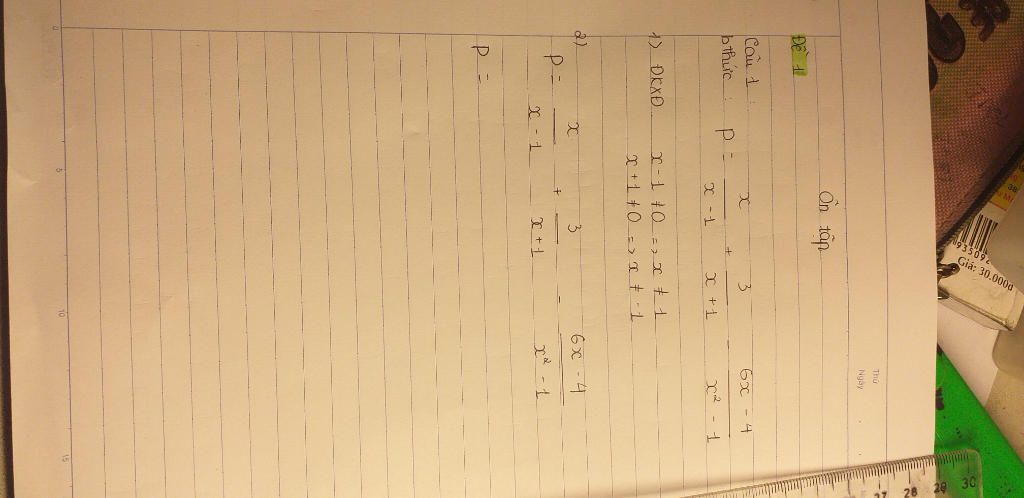 Thứ
Ngày
Ôn tập
Đề 1
Câu 1 :
b thức : P = x/(x - 1) + 3/(x + 1) - (6x - 4)/(x² - 1)
1) ĐKXĐ x - 1 ≠ 0 => x ≠ 1
x + 1 ≠ 0 => x ≠ - 1
2)
P = x/(x - 1) + 3/(x + 1) - (6x - 4)/(x² - 1)
P =
0 5 10 15
Giá: 30.000đ
27 28 29 30